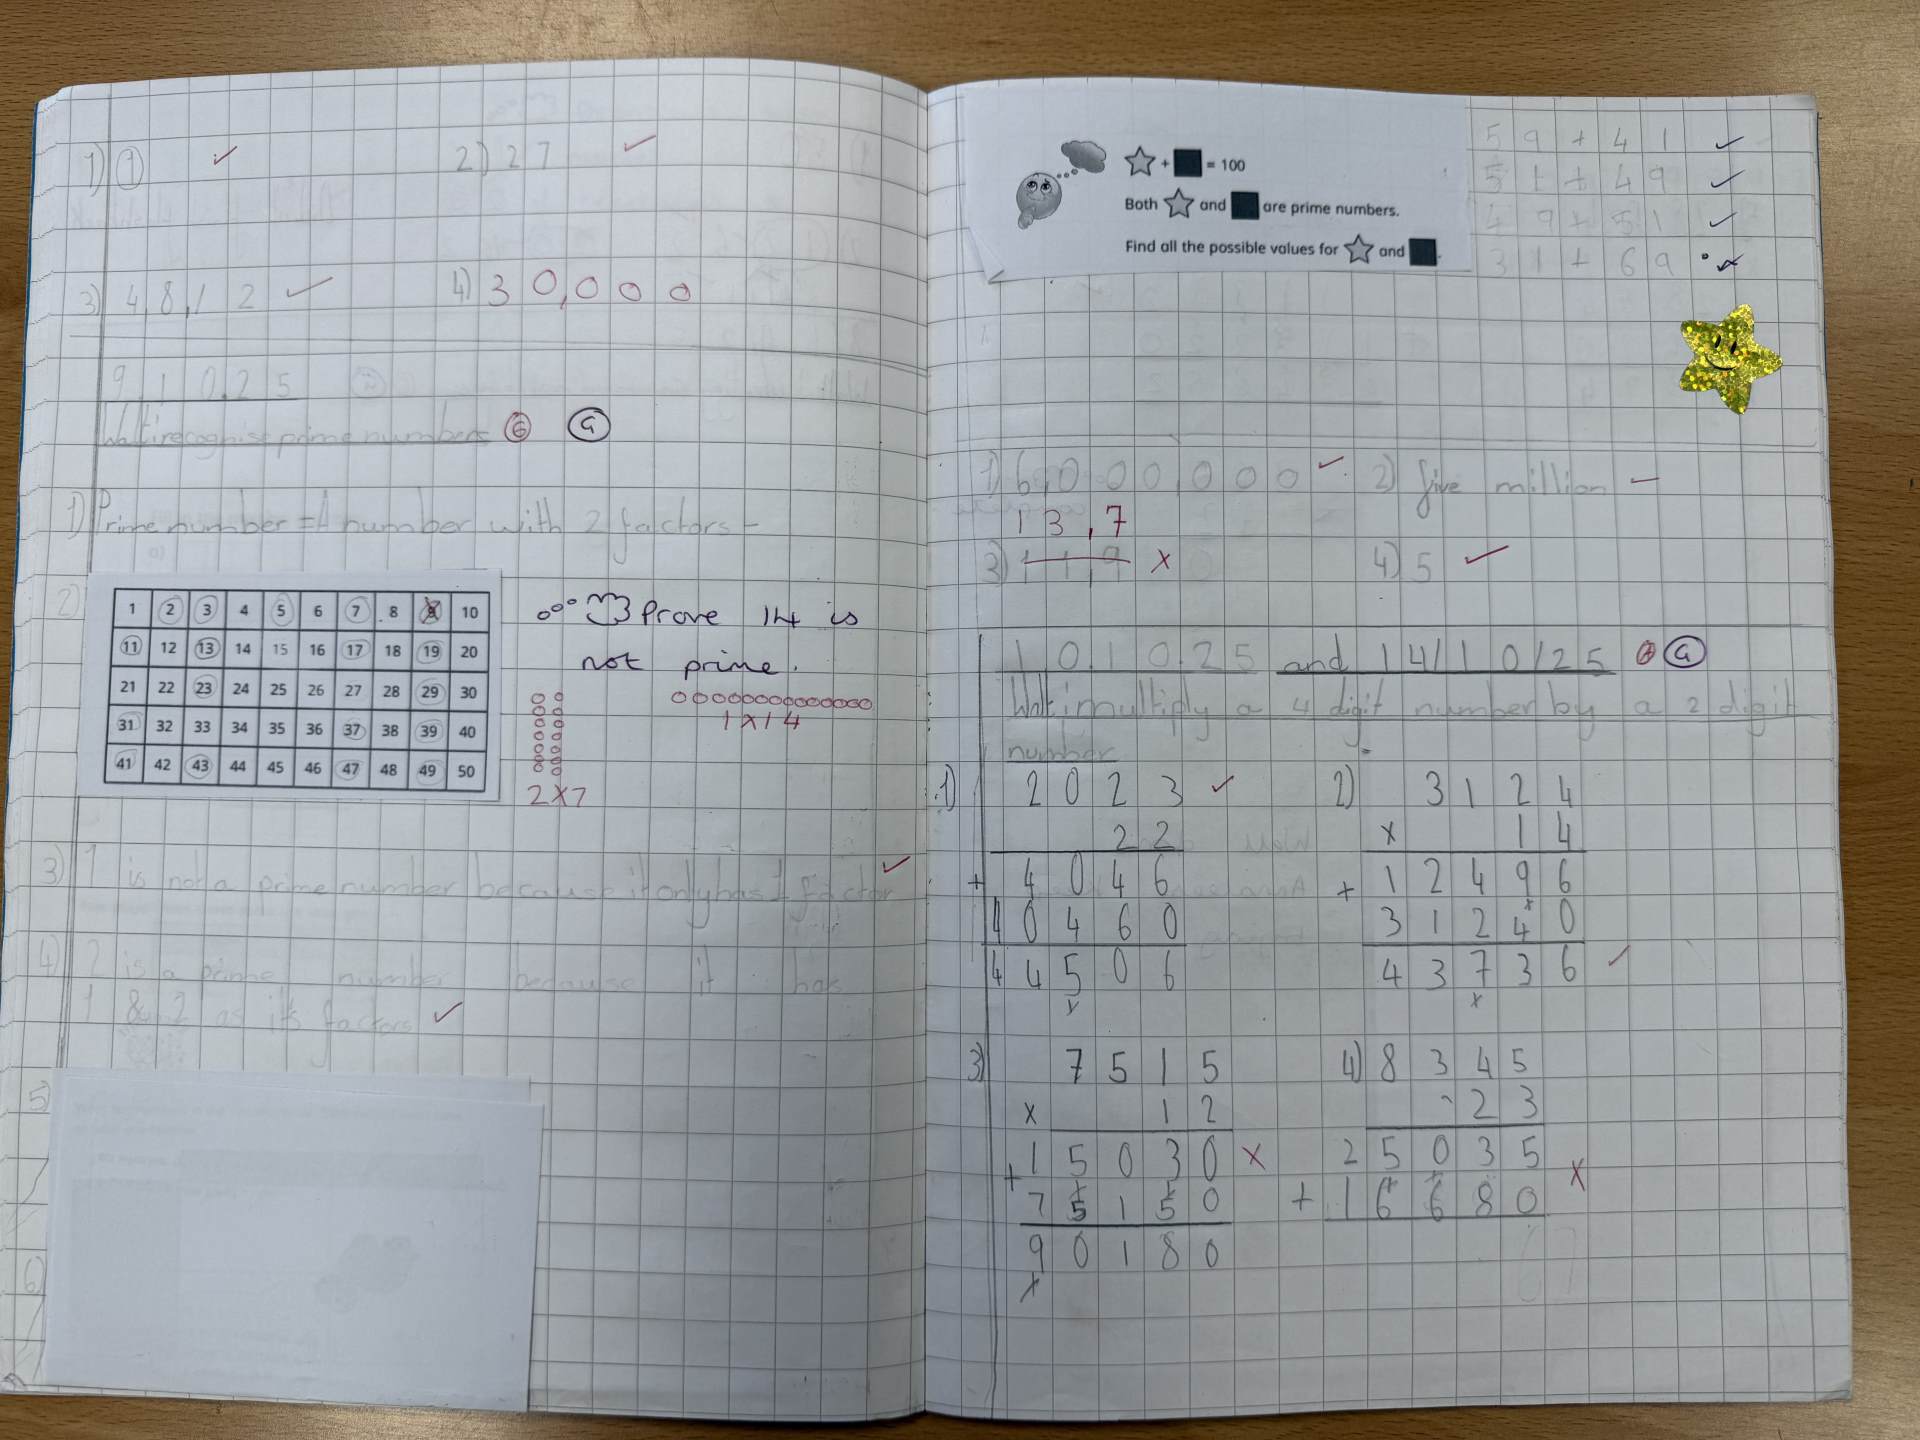 1) 1 ✓ 2) 27 ✓
3) 4,8,12 ✓ 4) 30,000
9.10.25
Walt: recognise prime numbers G G
1) Prime number = A number with 2 factors
2)
1 2 3 4 5 6 7 8 9 10
11 12 13 14 15 16 17 18 19 20
21 22 23 24 25 26 27 28 29 30
31 32 33 34 35 36 37 38 39 40
41 42 43 44 45 46 47 48 49 50
Prove 14 is
not prime.
1x14
2x7
3) 1 is not a prime number because it only has 1 factor ✓
4) 2 is a prime number because it has
1 & 2 as its factors ✓
5)
6)
☆ + ■ = 100
Both ☆ and ■ are prime numbers.
Find all the possible values for ☆ and ■.
59 + 41 ✓
51 + 49 ✓
49 + 51 ✓
31 + 69
1) 6,000,000 ✓ 2) five million
13,7
3) 11,9 x 4) 5 ✓
10.10.25 and 14/10/25 G
Walt: multiply a 4 digit number by a 2 digit
number
1) 2023 ✓
22
+ 4046
40460
44506
2) 3124
x 14
+ 12496
31240
43736 ✓
3) 7515
x 12
15030 x
+ 75150
90180
4) 8345
23
25035 x
+ 16680